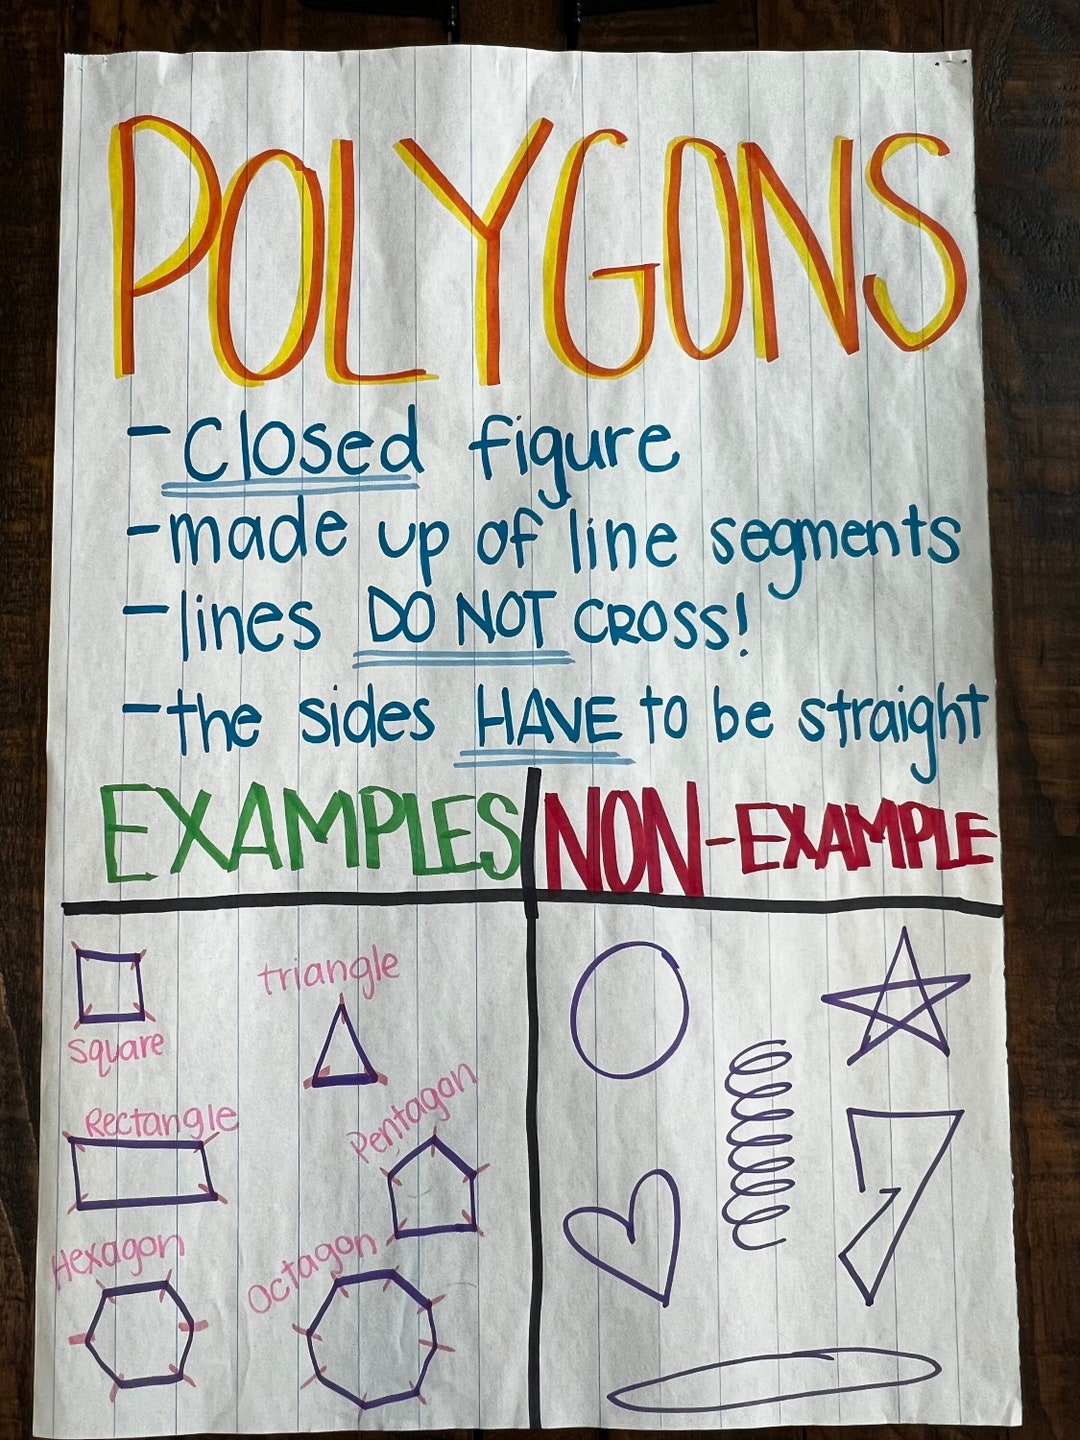 POLYGONS
- Closed figure
- made up of line segments
- lines DO NOT CROSS!
- the sides HAVE to be straight
EXAMPLES
NON-EXAMPLE
square
triangle
Rectangle
Pentagon
Hexagon
Octagon